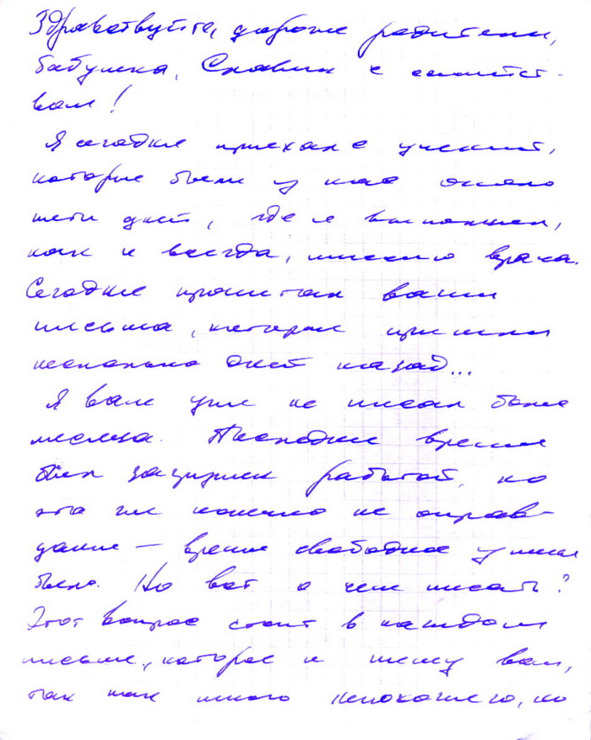 Здравствуйте, дорогие родители,
бабушка, Славик с семейст-
вом!
Я сегодня приехал с учений,
которые были у нас около
пяти дней, где я выполнял,
как и всегда, миссию врача.
Сегодня прочитал ваши
письма, которые пришли
несколько дней назад...
Я вам уже не писал более
месяца. Последнее время
был загружен работой, но
это же конечно не оправ-
дание — время свободное у меня
было. Но вот о чем писать?
Этот вопрос стоит в каждом
письме, которое я пишу вам,
так как много непохожего, но